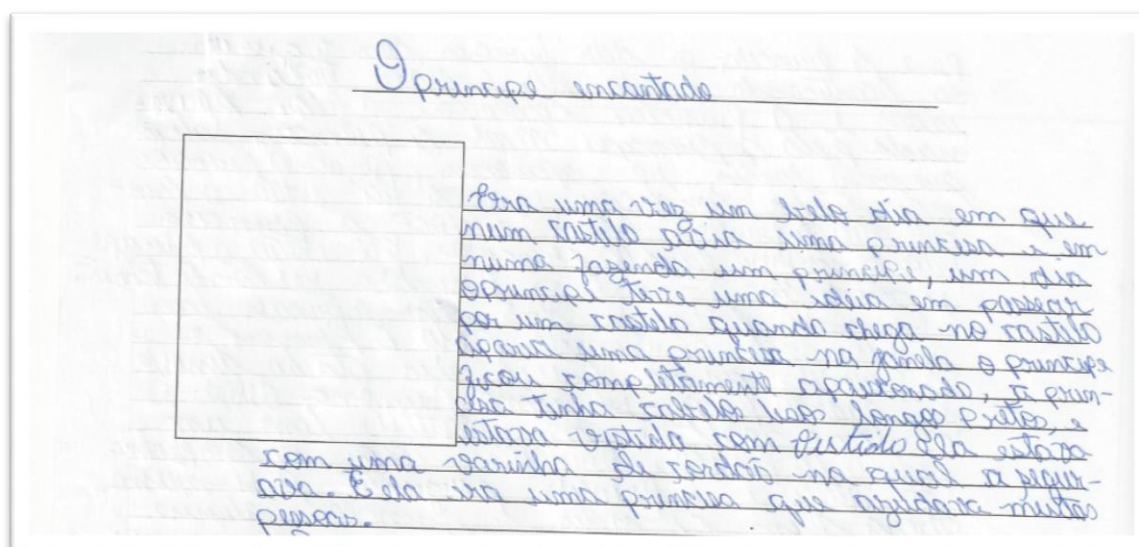 O principe encantado
Era uma vez um belo dia em que
num castelo avia uma princesa e em
numa fazenda um principe, um dia
o principe teve uma idéia em passear
por um castelo quando chega no castelo
aparece uma princesa na janela o principe
ficou completamente apaixonado, a prin-
cesa tinha cabelo liso longo preto, e
estava vestida com Vestido ela estava
com uma varinha de condão na qual a segur-
ava. E ela era uma princesa que ajudava muitas
pessoas.